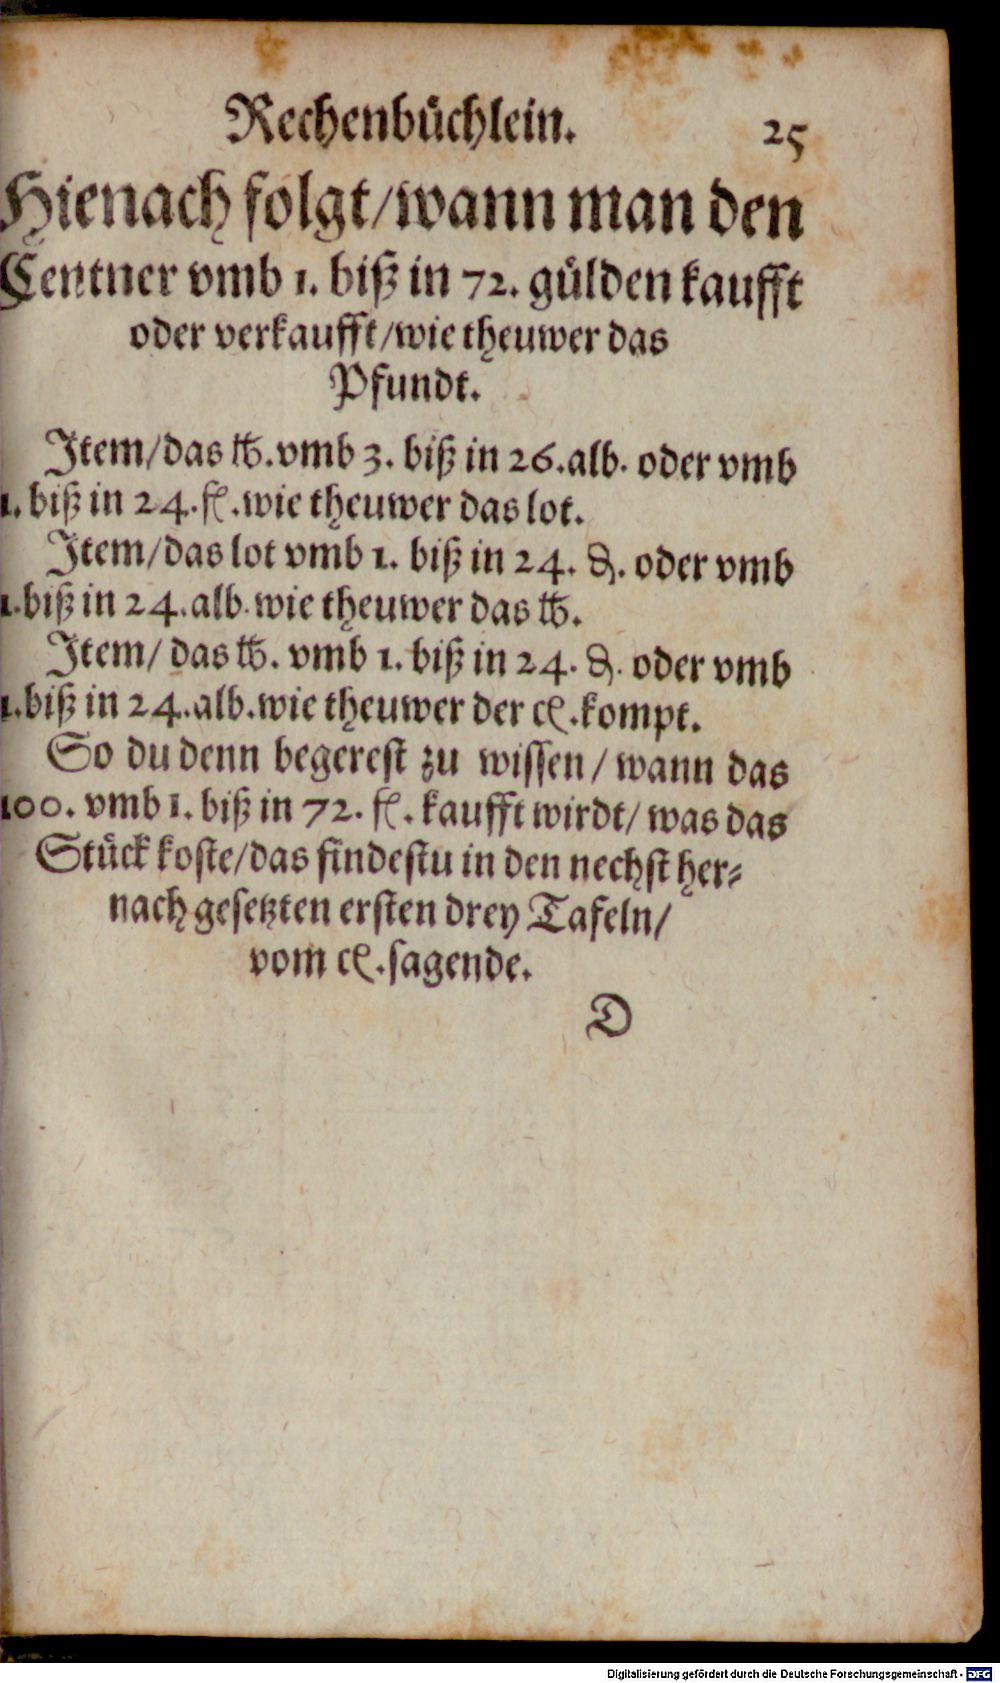 Rechenbüchlein. 25
Hienach folgt/wann man den
Centner vmb 1. biß in 72. gülden kaufft
oder verkaufft/wie theuwer das
Pfundt.
Item/das ℔.vmb 3. biß in 26.alb. oder vmb
1. biß in 24.fl.wie theuwer das lot.
Item/das lot vmb 1. biß in 24. ₰. oder vmb
1.biß in 24.alb.wie theuwer das ℔.
Item/ das ℔. vmb 1. biß in 24. ₰. oder vmb
1.biß in 24.alb.wie theuwer der cℓ.kompt.
So du denn begerest zu wissen/ wann das
100. vmb 1. biß in 72. fl. kaufft wirdt/ was das
Stück koste/das findestu in den nechst her⸗
nach gesetzten ersten drey Tafeln/
vom cℓ.sagende.
D
Digitalisierung gefördert durch die Deutsche Forschungsgemeinschaft - DFG